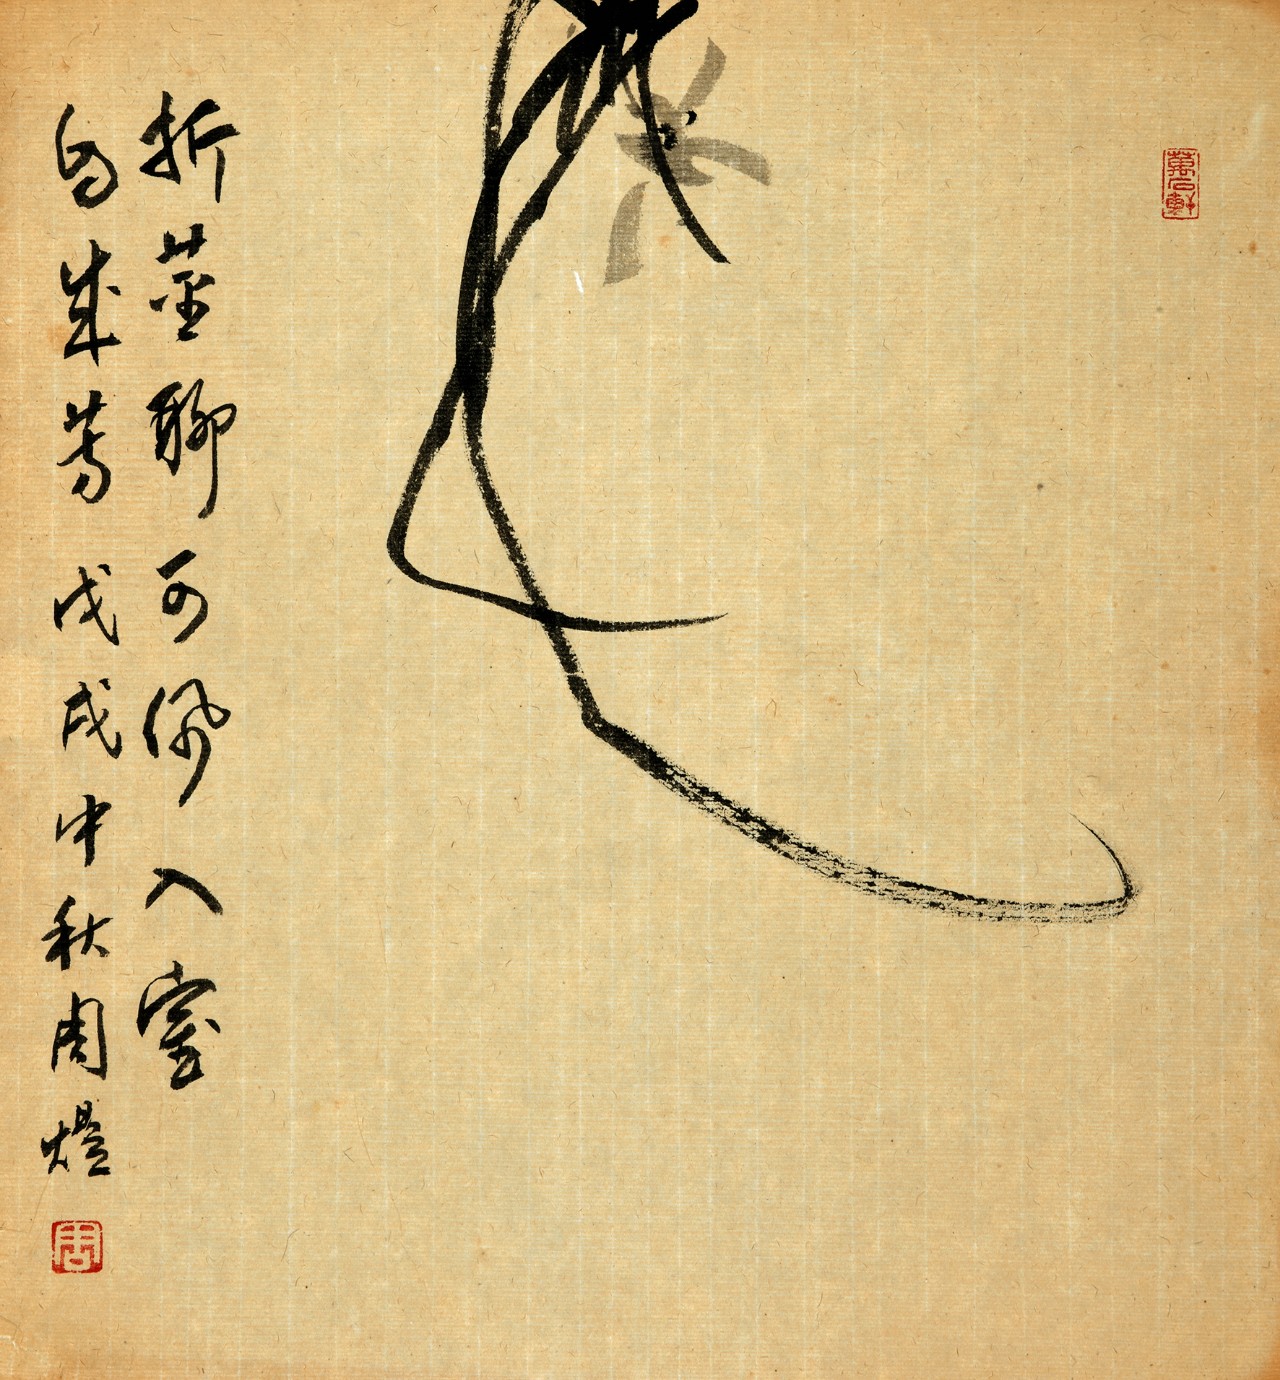 折莖聊可佩入室
自成芳戊戌中秋周熅
萬石軒
周